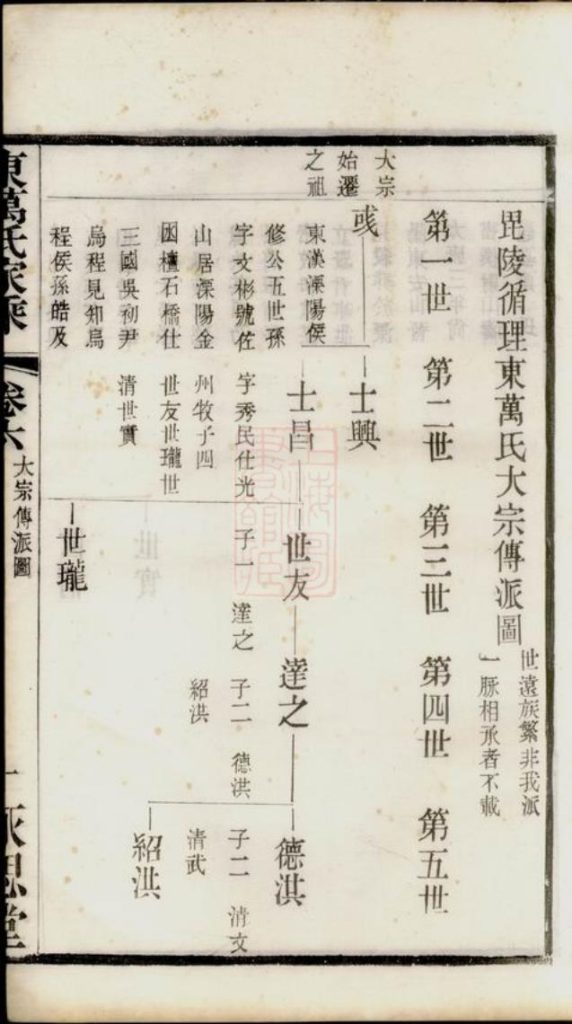 毘陵循理東萬氏大宗傳派圖
世遠族繁非我派
一脈相承者不載
第一世 第二世 第三世 第四世 第五世
大宗
始遷
之祖
彧
東漢溧陽侯
修公五世孫
字文彬號佐
山居溧陽金
困檀石橋仕
三國吳初尹
烏程見知烏
程侯孫皓及
士興
士昌
字秀民仕光
州牧子四
世友世瓏世
清世實
世友
子一 達之
世瓏
達之
子二 德洪
紹洪
德洪
子二 清文
清武
紹洪
東萬氏家乘
卷六
大宗傳派圖
一